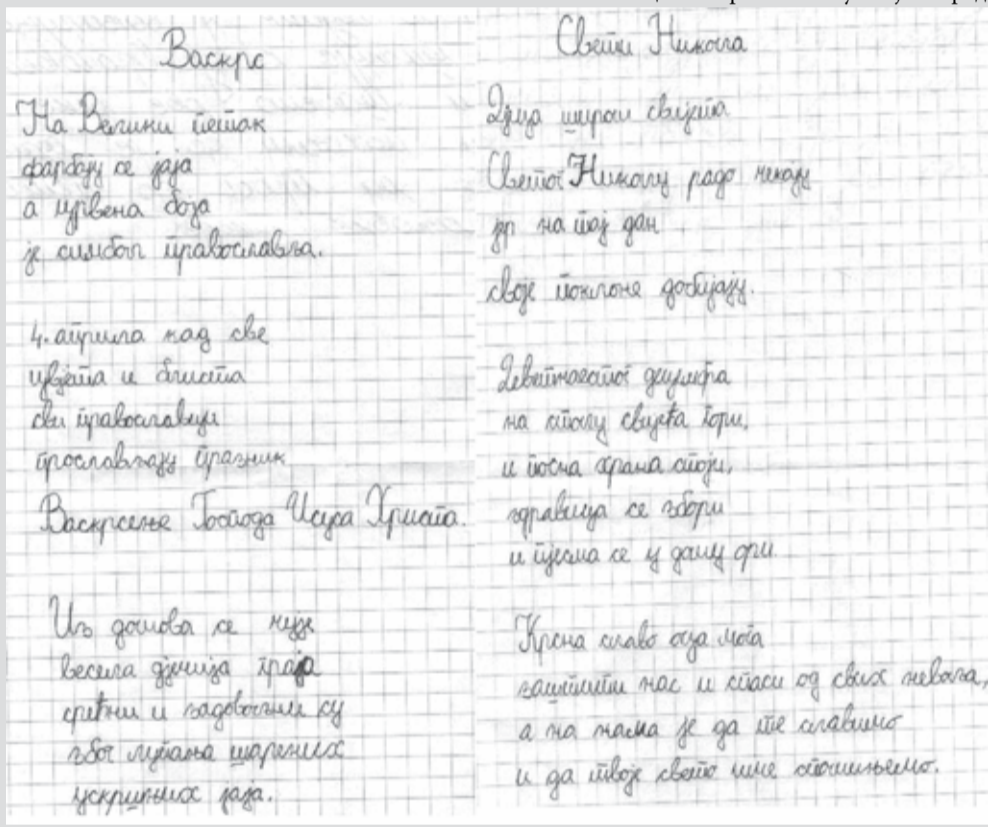 Васкрс
На Велики петак
фарбају се јаја
а црвена боја
је симбол православља.
4. априла кад све
цвјета и блиста
сви православци
прослављају празник
Васкрсење Господа Исуса Христа.
Из домова се чује
весела дјечија граја
срећни и задовољни су
због лупања шарених
ускршњих јаја.
Свети Никола
Дјеца широм свијета
Светог Николу радо чекају
јер на тај дан
своје поклоне добијају.
Деветнаестог децембра
на столу свијећа гори,
и посна храна стоји,
здравица се збори
и пјесма се у дому ори
Крсна славо оца мога
заштити нас и спаси од свих невоља,
а на нама је да те славимо
и да твоје свето име спомињемо.